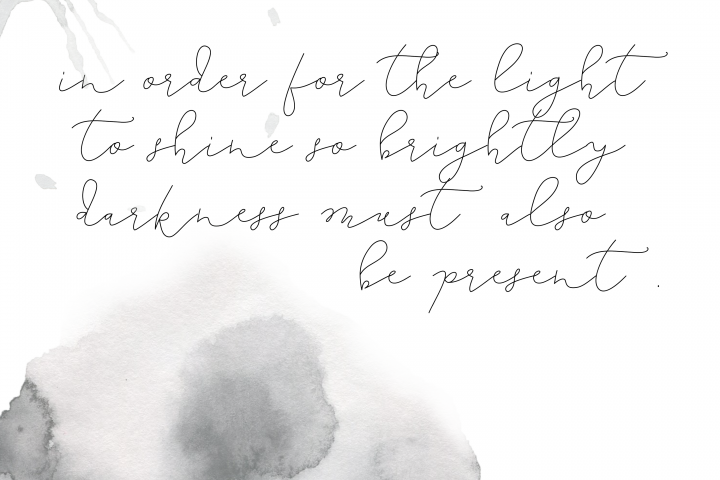 in order for the light
to shine so brightly
darkness must also
be present .